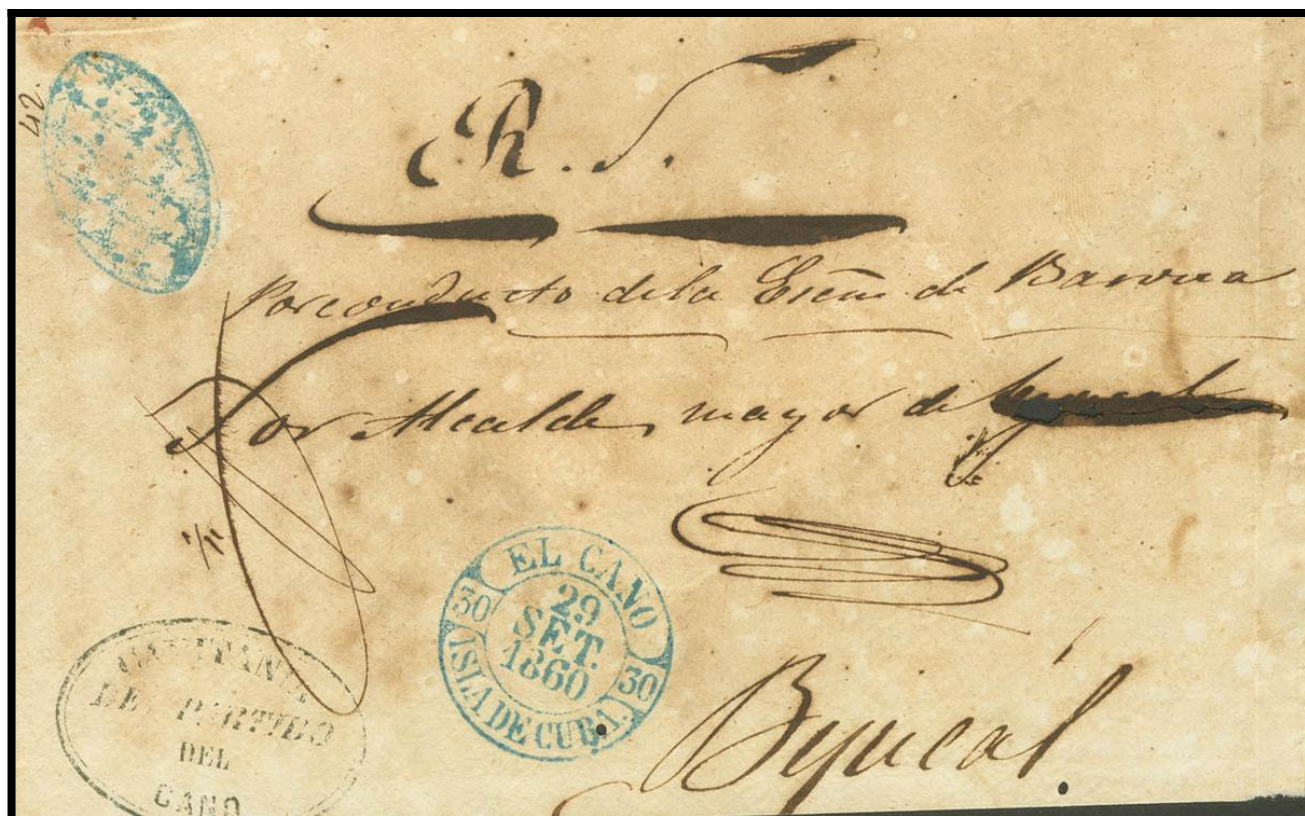 42.
R. S.
Por conducto de la
Sor Alcalde mayor de
EL CANO
30
29
SET.
1860
30
ISLA DE CUBA.
CAPITANIA
DEL PARTIDO
DEL
CANO
Bejucál